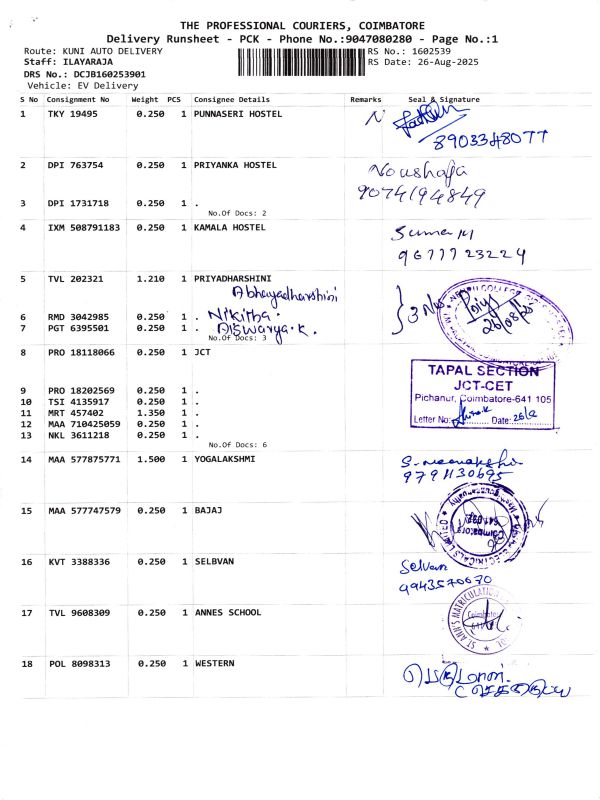 THE PROFESSIONAL COURIERS, COIMBATORE
Delivery Runsheet - PCK - Phone No.:9047080280 - Page No.:1
Route: KUNI AUTO DELIVERY RS No.: 1602539
Staff: ILAYARAJA RS Date: 26-Aug-2025
DRS No.: DCJB160253901
Vehicle: EV Delivery
S No Consignment No Weight PCS Consignee Details Remarks Seal & Signature
1 TKY 19495 0.250 1 PUNNASERI HOSTEL
8903348077
2 DPI 763754 0.250 1 PRIYANKA HOSTEL Noushafa
9074194849
3 DPI 1731718 0.250 1 .
No.Of Docs: 2
4 IXM 508791183 0.250 1 KAMALA HOSTEL
9677723224
5 TVL 202321 1.210 1 PRIYADHARSHINI
Abhayadharshini
6 RMD 3042985 0.250 1 . Nikitha
7 PGT 6395501 0.250 1 . Aiswarya.K.
No.Of Docs: 3
26/08/25
8 PRO 18118066 0.250 1 JCT
TAPAL SECTION
JCT-CET
Pichanur, Coimbatore-641 105
Letter No: Date: 26/8
9 PRO 18202569 0.250 1 .
10 TSI 4135917 0.250 1 .
11 MRT 457402 1.350 1 .
12 MAA 710425059 0.250 1 .
13 NKL 3611218 0.250 1 .
No.Of Docs: 6
14 MAA 577875771 1.500 1 YOGALAKSHMI S. meenakshi
9791130695
15 MAA 577747579 0.250 1 BAJAJ
16 KVT 3388336 0.250 1 SELBVAN Selvan
9943570670
17 TVL 9608309 0.250 1 ANNES SCHOOL
ST ANN'S MATRICULATION
18 POL 8098313 0.250 1 WESTERN